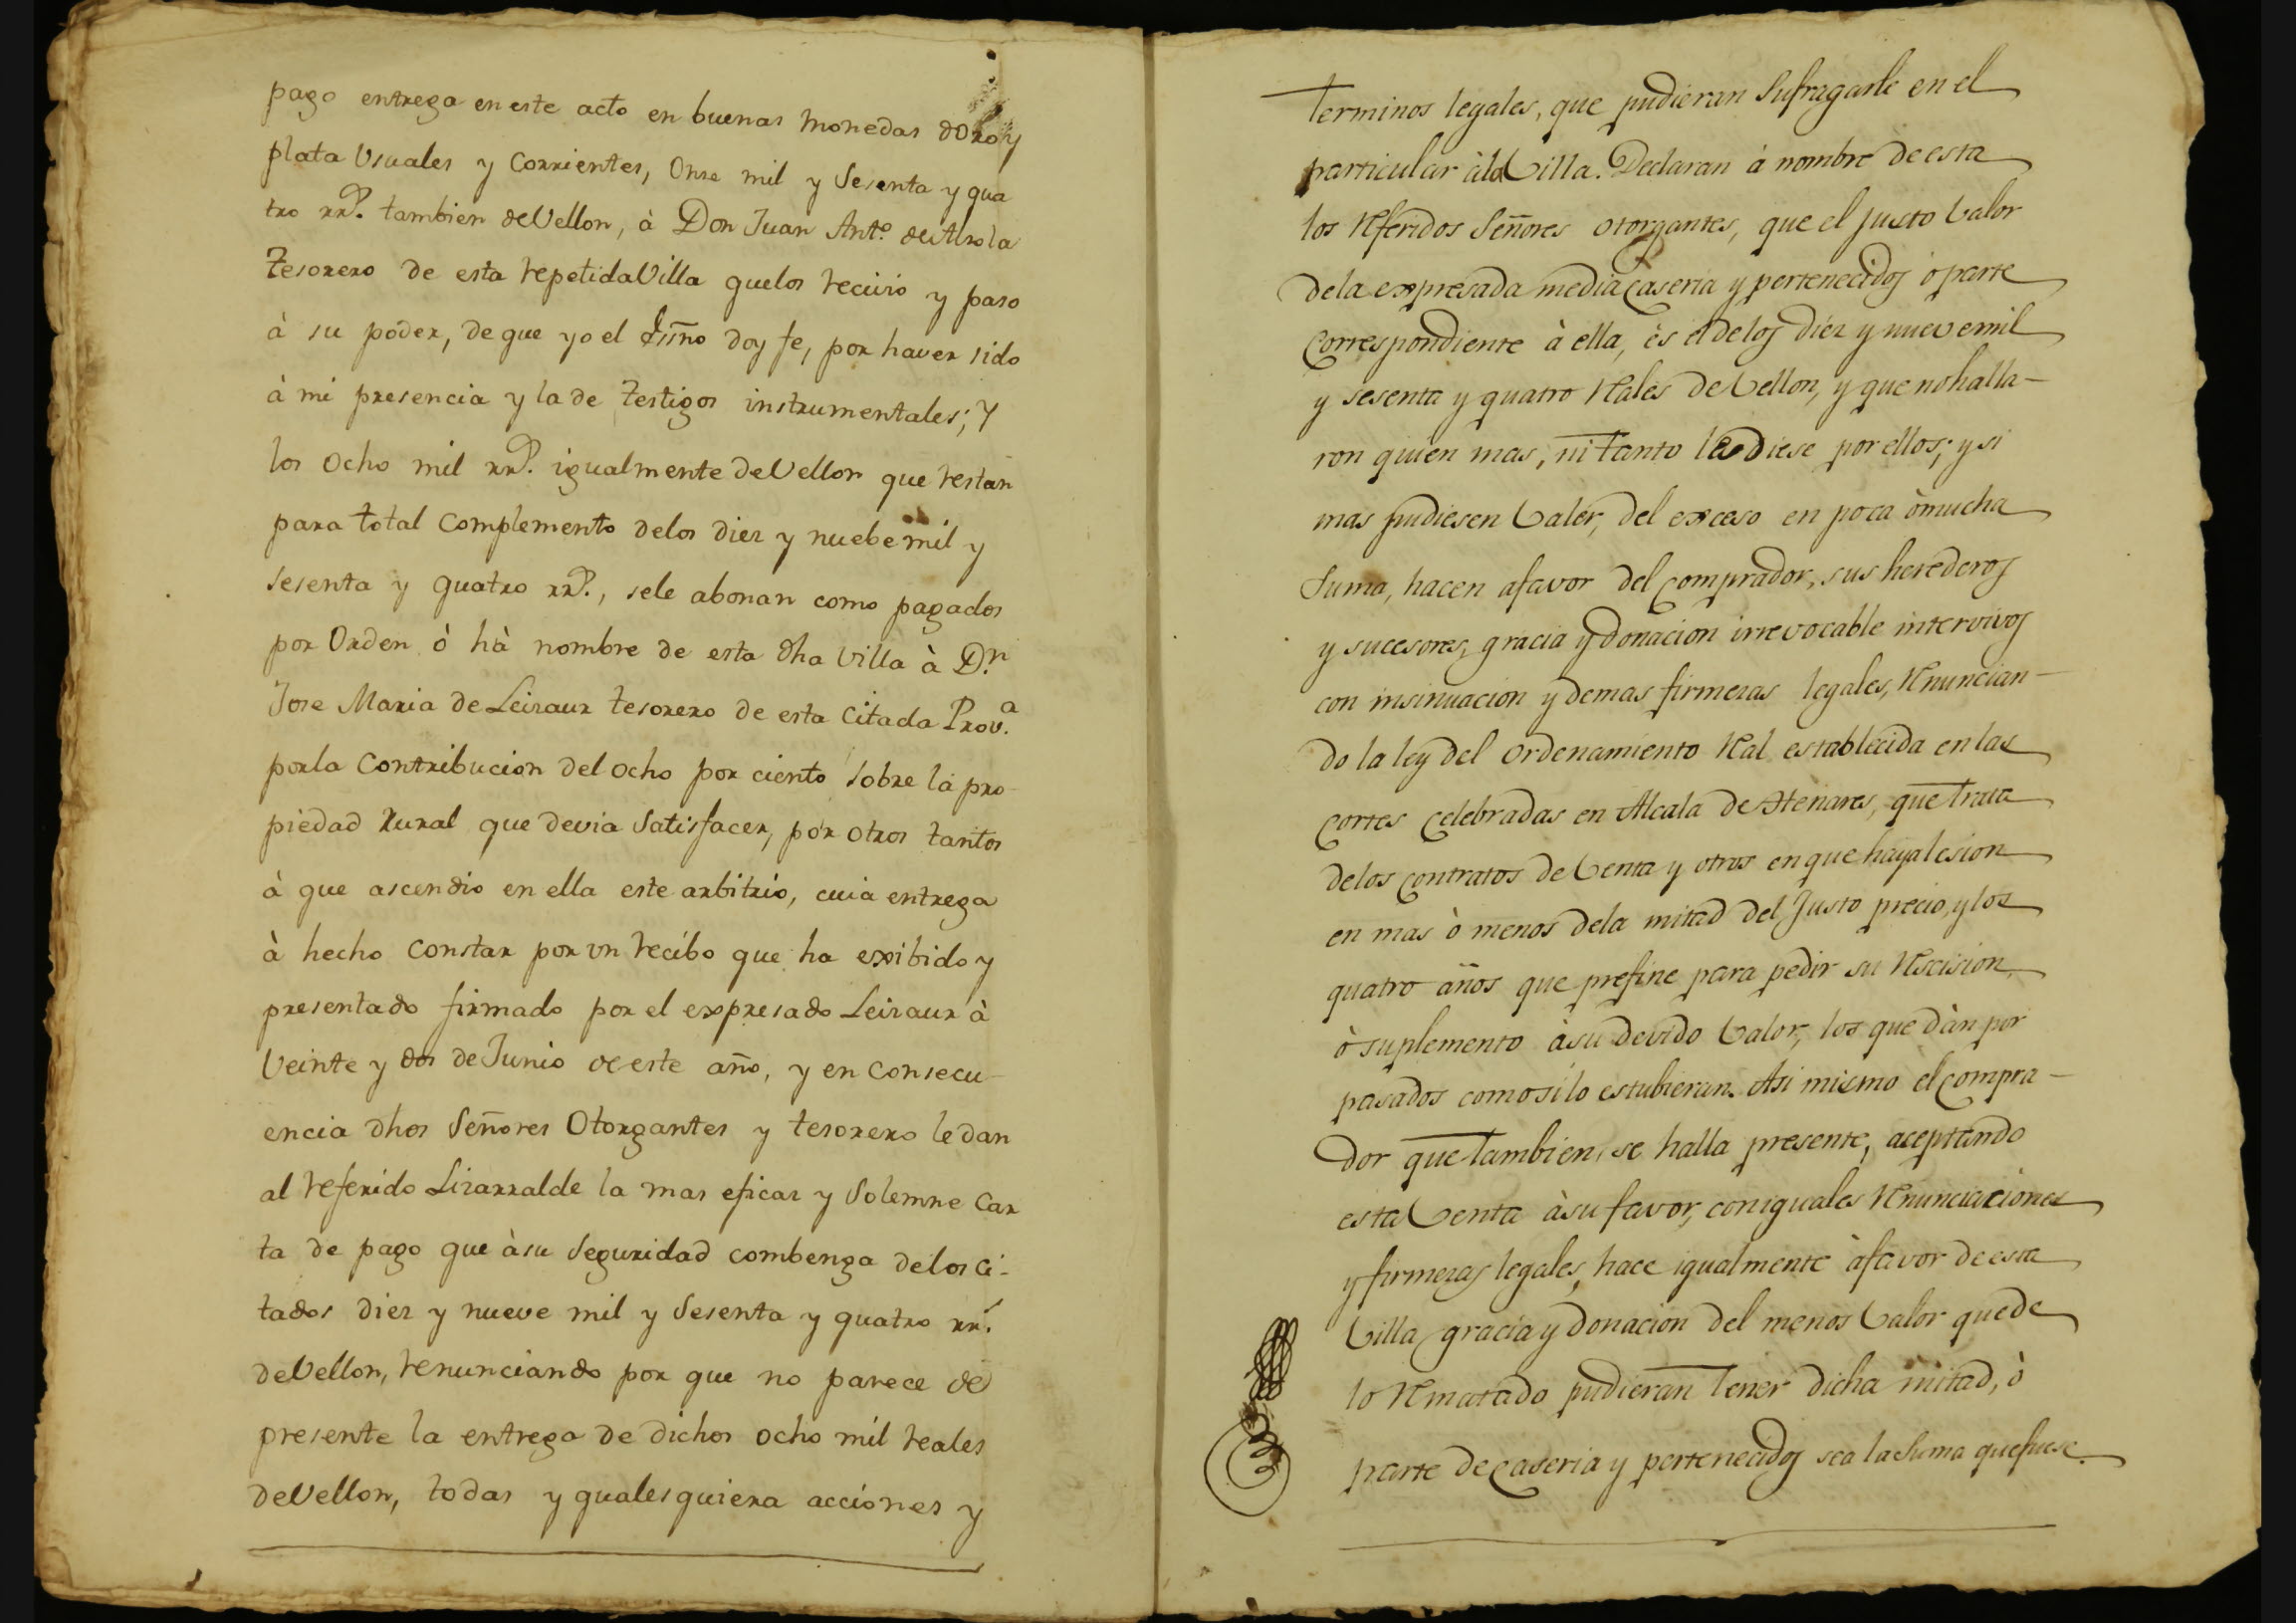 pago entrega en este acto en buenas monedas dOro y
plata Usuales y Corrientes, Onse mil y Sesenta y qua
tro rr.^s tambien deVellon, à Don Juan Ant.º de Alzola
Tesorero de esta repetida Villa quelos reciuio y paso
à su poder, de que yo el Essño doy fe, por haver sido
à mi presencia y la de Testigos instrumentales; Y
los Ocho mil rr.^s igualmente deVellon que restan
para total Complemento delos diez y nuebe mil y
sesenta y quatro rr.^s, sele abonan como pagados
por Orden ò hà nombre de esta dha Villa à D.^n
Jose Maria de Leizaur tesorero de esta Citada Prov.ª
porla Contribucion del Ocho por ciento sobre la pro-
piedad Rural que devia Satisfacer, por otros tantos
à que ascendio en ella este arbitrio, cuia entrega
à hecho Constar por un recibo que ha exibido y
presentado firmado por el expresado Leizaur à
Veinte y dos de Junio de este año, y en Consecu-
encia dhos Señores Otorgantes y tesorero le dan
al referido Lizarralde la mas eficaz y Solemne Car
ta de pago que àsu Seguridad combenga delos Ci-
tados diez y nueve mil y Sesenta y quatro rr.^s
deVellon, renunciando por que no parece de
presente la entrega de dichos ocho mil reales
deVellon, todas y qualesquiera acciones y
Terminos legales, que pudieran Sufragarle en el
particular àla Villa. Declaran à nombre de esta
los Referidos Señores otorgantes, que el justo Valor
dela expresada media Caseria y pertenecidos o parte
Correspondiente à ella, és el delos diez y nueve mil
y sesenta y quatro Reales de Vellon, y que no halla-
ron quien mas, ni tanto les diese por ellos; y si
mas pudiesen Valer, del exceso en poca òmucha
Suma, hacen afavor del Comprador, sus herederos
y sucesores, gracia y donacion irrevocable intervivos
con insinuacion y demas firmezas legales, Renuncian-
do la ley del Ordenamiento Real establecida en las
Cortes Celebradas en Alcala de Henares, que trata
delos Contratos de Venta y otros en que haya lesion
en mas ò menos dela mitad del Justo precio, y los
quatro años que prefine para pedir su Rescision,
ò suplemento àsu devido Valor, los que dàn por
pasados como silo estubieran. Asi mismo el Compra-
dor que tambien se halla presente, aceptando
esta Venta àsu favor, con iguales Renunciaciones
y firmezas legales, hace igualmente àfavor de esta
Villa gracia y donacion del menos Valor que de
lo Rematado pudieran tener dicha mitad, ò
parte de Caseria y pertenecidos sea la Suma que fuese.